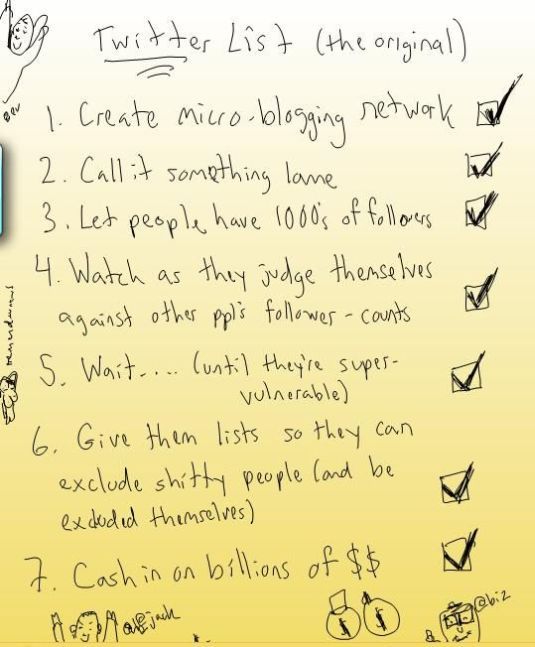 Twitter List (the original)
ev
1. Create micro-blogging network
2. Call it something lame
3. Let people have 1000's of followers
4. Watch as they judge themselves
against other ppl's follower-counts
5. Wait.... (until they're super-
vulnerable)
6. Give them lists so they can
exclude shitty people (and be
excluded themselves)
7. Cash in on billions of $$
@jack
$ $
@biz